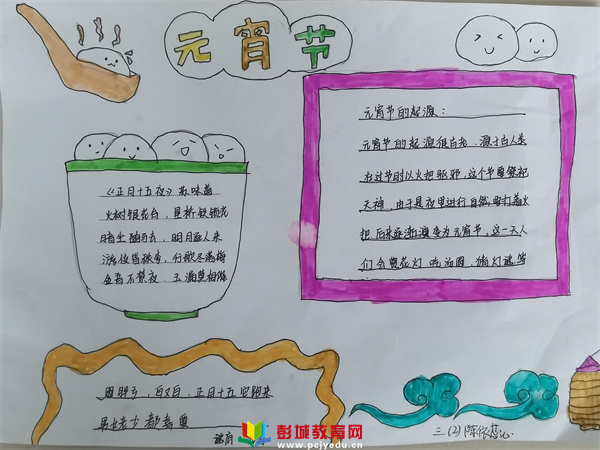 元宵节
《正月十五夜》苏味道
火树银花合，星桥铁锁开
暗尘随马去，明月逐人来
游伎皆秾李，行歌尽落梅
金吾不禁夜，玉漏莫相催
元宵节的起源：
元宵节的起源很古老，源于古人类
在过节时以火把驱邪，这个节要祭祀
天神，由于是夜里进行自然要打着火
把，后来逐渐演变为元宵节，这一天人
们会赏花灯 吃汤圆，猜灯谜等
圆胖子，白又白，正月十五
男女老少都喜
谜底
三（2）陈
彭城教育网
www.pcjyedu.cn